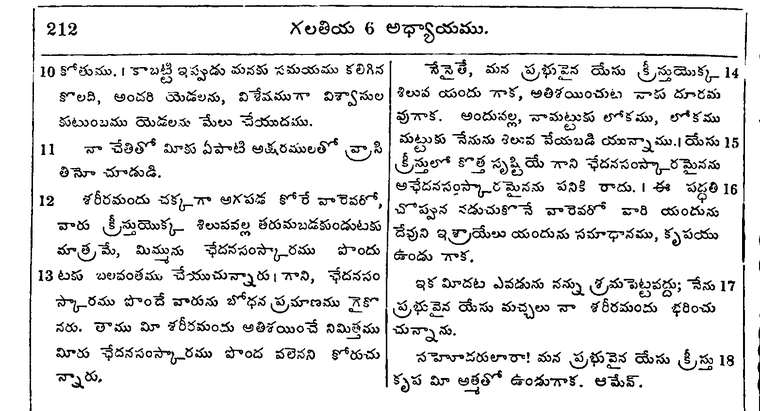 212 గలతీయ 6 అధ్యాయము.
10 కోతుము. । కాబట్టి ఇప్పుడు మనకు సమయము కలిగిన
కొలది, అందరి యెడలను, విశేషముగా విశ్వాసుల
కుటుంబము యెడలను మేలు చేయుదము.
11 నా చేతితో మీకు ఏపాటి అక్షరములతో వ్రాసి
తినో చూడుడి.
12 శరీరమందు చక్కగా అగపడ కోరే వారెవరో,
వారు క్రీస్తుయొక్క శిలువవల్ల తరుమబడకుండుటకు
మాత్రమే, మిమ్మును ఛేదనసంస్కారము పొందు
13 టకు బలవంతము చేయుచున్నారు। గాని, ఛేదనసం
స్కారము పొందే వారును బోధన ప్రమాణము గైకొ
నరు. తాము మీ శరీరమందు అతిశయించే నిమిత్తము
మీరు ఛేదనసంస్కారము పొంద వలెనని కోరుచు
న్నారు.
నేనైతే, మన ప్రభువైన యేసు క్రీస్తుయొక్క 14
శిలువ యందు గాక, అతిశయించుట నాకు దూరమ
వుగాక. అందునల్ల, నామట్టుకు లోకము, లోకము
మట్టుకు నేనును శిలువ వేయబడి యున్నాము. । యేసు 15
క్రీస్తులో కొత్త సృష్టియే గాని ఛేదనసంస్కారమైనను
అఛేదనసంస్కారమైనను పనికి రాదు. । ఈ పద్ధతి 16
చొప్పున నడుచుకొనే వారెవరో వారి యందును
దేవుని ఇశ్రాయేలు యందును సమాధానము, కృపయు
ఉండు గాక.
ఇక మీదట ఎవడును నన్ను శ్రమపెట్టవద్దు; నేను 17
ప్రభువైన యేసు మచ్చలు నా శరీరమందు భరించు
చున్నాను.
సహోదరులారా! మన ప్రభువైన యేసు క్రీస్తు 18
కృప మీ ఆత్మతో ఉండుగాక. ఆమేన్.